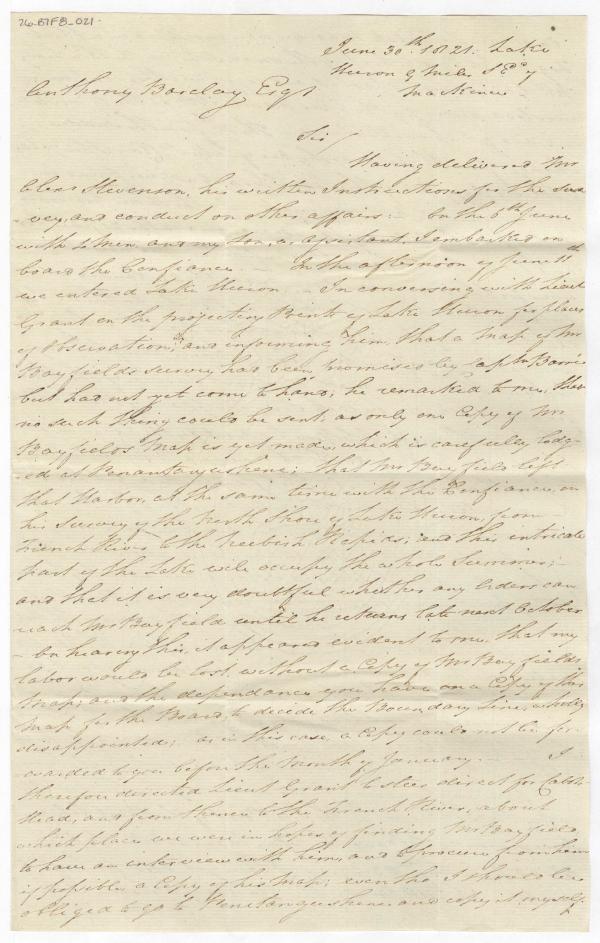 26-B7FB-021-
June 30th 1821. Lake
Huron 9 Miles SEd'y
Mackinac
Anthony Barclay Esqr
Sir/
Having delivered Mr
Stevenson, his written Instructions for the Sur
-vey, and conduct on other affairs:- On the 6th June
with 4 Men, and my Son, as assistant, I embarked on
board the Confiance. In the afternoon of June 11th
we entered Lake Huron - In conversing with Lieut
Grant on the projecting Points of Lake Huron for places
of Observation, and informing him, that a Map of Mr
Bayfields survey had been promised by Captn Barrie
but had not yet come to hand; he remarked to me, that
no such thing could be sent; as only one Copy of Mr
Bayfields Map is yet made, which is carefully lodg
-ed at Penantayushene; that Mr Bayfield left
that Harbor, at the same time with the Confiance, on
his survey of the North Shore of Lake Huron, from
French River to the Neebish Rapids; and this intricate
part of the Lake will occupy the whole Summer;-
and that it is very doubtful whether any Orders can
reach Mr Bayfield until he returns late next October
- On hearing this, it appeared evident to me, that my
labor would be lost, without a Copy of Mr Bayfields
Map; and the dependance you have on a Copy of this
Map for the Board, to decide the Boundary Line, wholly
disappointed; as in this case, a Copy could not be for
-warded to you before the Month of January. - I
therefore directed Lieut Grant to steer direct for Cabots
Head, and from thence to the French River, about
which place we were in hopes of finding Mr Bayfield,
to have an interview with him, and to procure from him
if possible a Copy of his Map; even tho' I should be
obliged to go to Penetangushene and copy it myself.